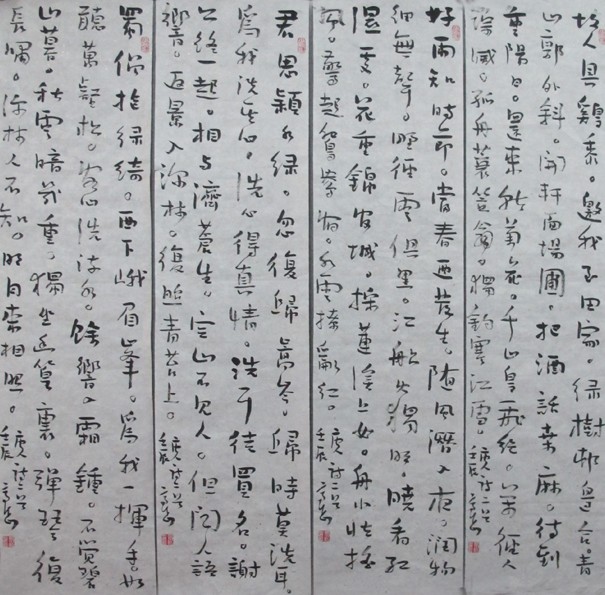 故人具鷄黍。邀我至田家。绿樹邨邊合。青
山郭外斜。開軒面場圃。把酒話桑麻。待到
重陽日。還來就菊花。千山鳥飛绝。万徑人
踪滅。孤舟蓑笠翁。獨釣寒江雪。壬辰唐詩二首
好雨知時節。當春迺發生。随風潛入夜。润物
细無聲。野径雲俱黑。江船火獨明。曉看红
湿處。花重錦官城。採蓮溪上女。舟小怯摇
風。驚起鴛鴦宿。水雲撩亂红。壬辰唐詩二首
君思潁水绿。忽復歸嵩岑。歸時莫洗耳。
為我洗其心。洗心得真情。洗耳徒買名。謝
公终一起。相与濟蒼生。空山不見人。但闻人語
響。返景入深林。復照青苔上。壬辰唐詩二首
蜀僧抱绿綺。西下峨眉峰。為我一揮手。如
聽萬壑松。客心洗流水。餘響入霜鍾。不覺碧
山暮。秋雲暗幾重。獨坐幽篁裏。彈琴復
長嘯。深林人不知。明月來相照。壬辰唐詩二首